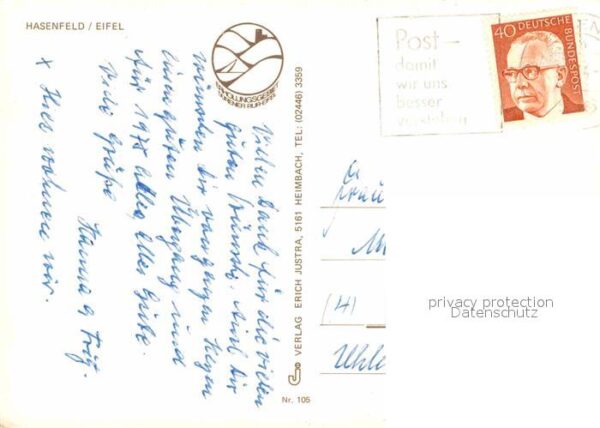 HASENFELD / EIFEL
ERHOLUNGSGEBIET
Vielen Dank für die vielen
guten Wünsche. Auch Dir
wünschen wir von ganzem Herzen
einen guten Übergang und
für 1978 alles, alles Gute.
Viele Grüße
Hanna u. Fritz.
x Hier wohnen wir.
VERLAG ERICH JUSTRA, 5161 HEIMBACH, TEL: (02446) 3359
Nr. 105
Post –
damit
wir uns
besser
verstehen
40 DEUTSCHE BUNDESPOST
Frau
(41)
privacy protection
Datenschutz